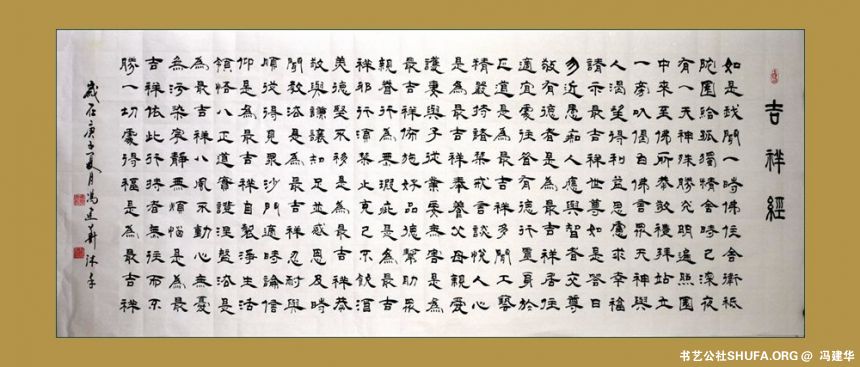 吉祥經
如是我聞一時佛住舍衛祇
陀園給孤獨精舍時已深夜
有一天神殊勝光明遍照園
中來至佛所恭敬禮拜站立
一旁以偈白佛言眾天神與
人渴望得利益思慮求幸福
請示最吉祥世尊如是答曰
勿近愚痴人應與智者交尊
敬有德者是為最吉祥居住
適宜處往昔有德行置身於
正道是為最吉祥多聞工藝
精嚴持諸禁戒言談悅人心
是為最吉祥奉養父母親愛
護妻與子從業要無害是為
最吉祥佈施好品德幫助眾
親眷行為無瑕疵是為最吉
祥邪行須禁止克己不飲酒
美德堅不移是為最吉祥恭
敬與謙讓知足並感恩及時
聞教法是為最吉祥忍耐與
順從得見眾沙門適時論信
仰是為最吉祥自製淨生活
領悟八正道實證涅槃法是
為最吉祥八風不動心無憂
無污染寧靜無煩惱是為最
吉祥依此行持者無往而不
勝一切處得福是為最吉祥
歲在庚子夏月馮建華沐手
书艺公社SHUFA.ORG @ 冯建华